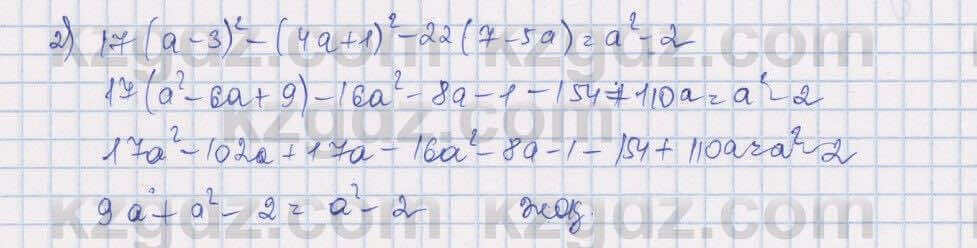 2) 17(a-3)²-(4a+1)²-22(7-5a)=a²-2
17(a²-6a+9)-16a²-8a-1-154+110a=a²-2
17a²-102a+17a-16a²-8a-1-154+110a=a²-2
9a+a²-2=a²-2 жоқ.
kzgdz.com kzgdz.com
kzgdz.com
kzgdz.com kzgdz.com